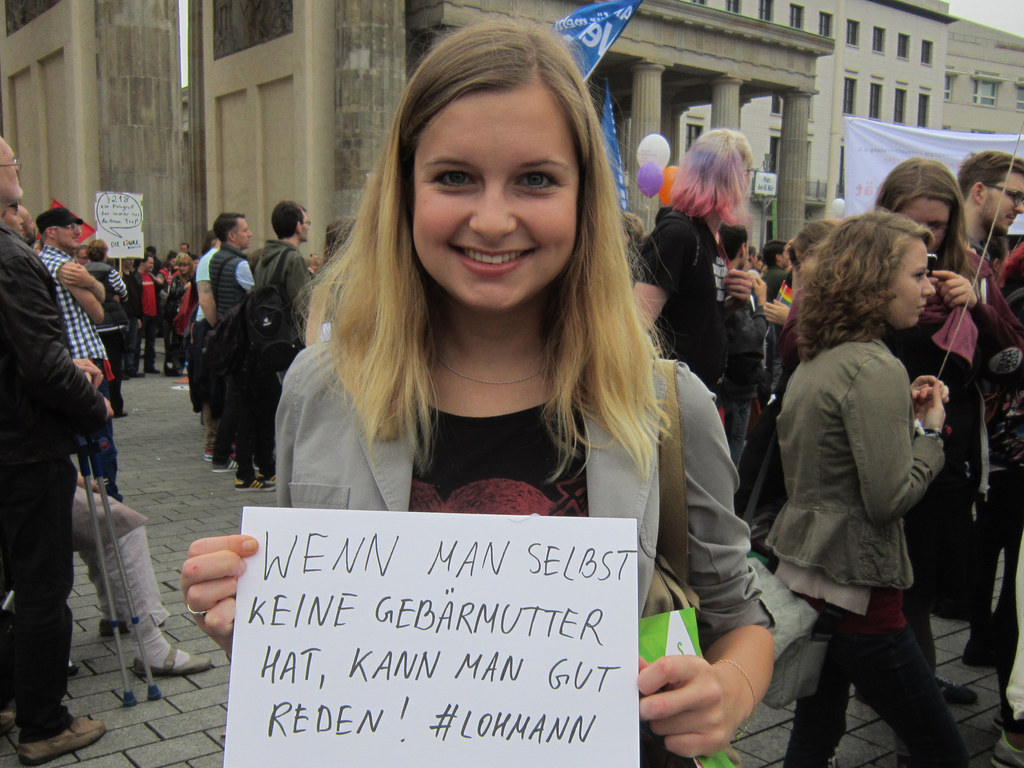 WENN MAN SELBST
KEINE GEBÄRMUTTER
HAT, KANN MAN GUT
REDEN! #LOHMANN
§218
DIE LINKE.